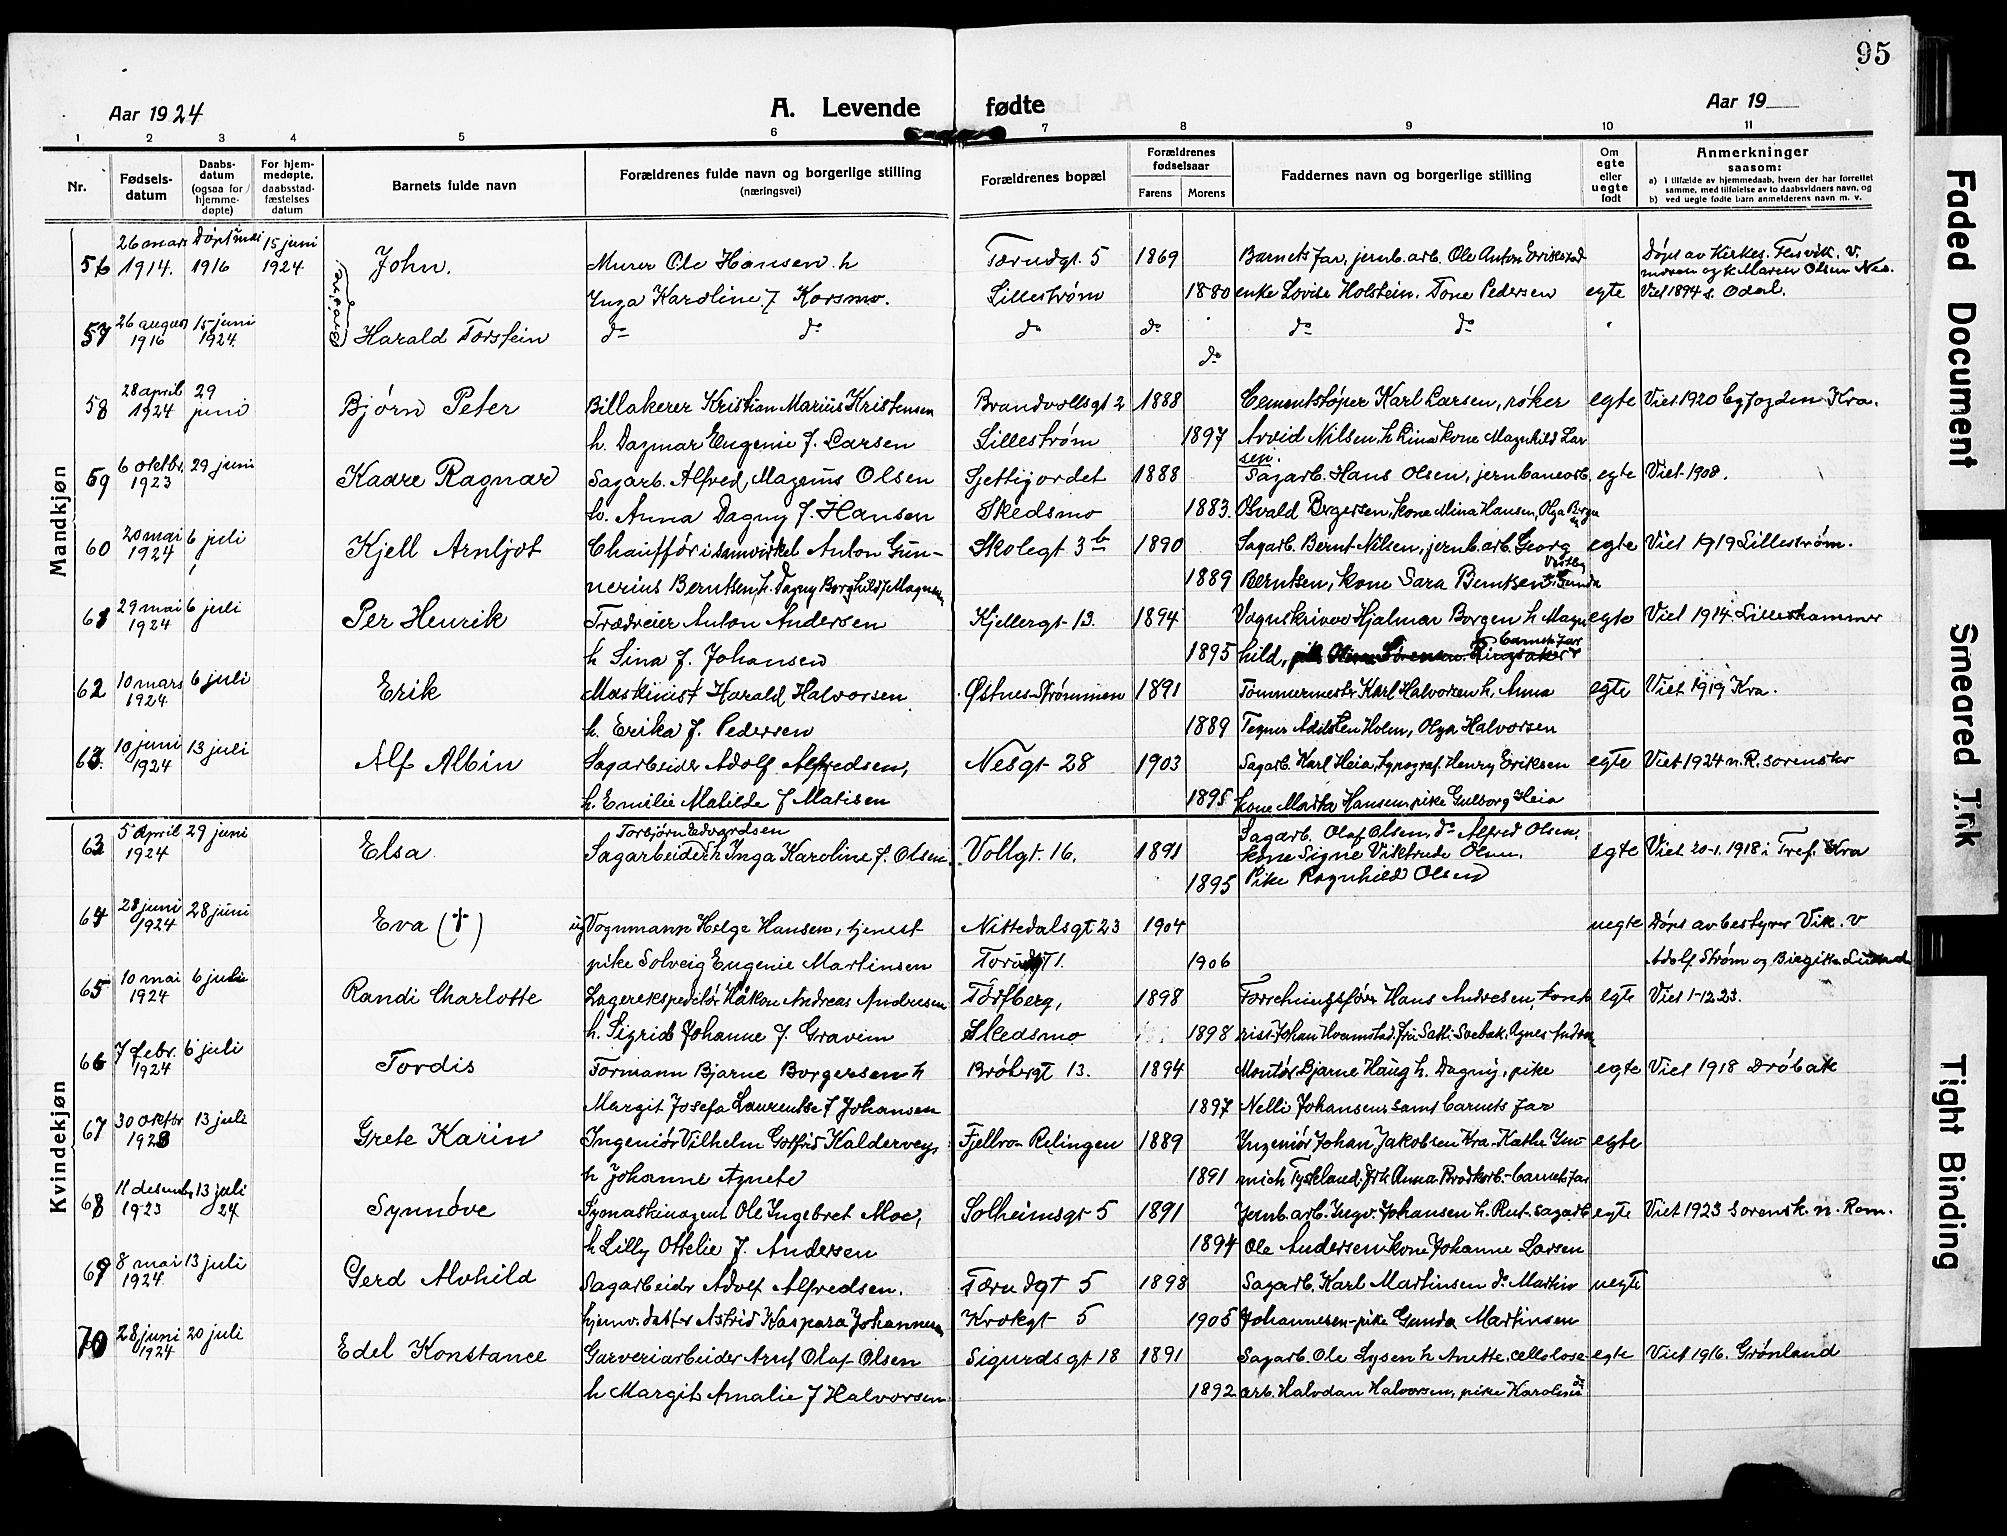 95
Aar 1924
A. Levende fødte
Aar 19
1 2 3 4 5 6 7 8 9 10 11
Nr.
Fødsels-datum
Daabs-datum (ogsaa for hjemme-døpte)
For hjem-medøpte, daabsstad-fæstelses datum
Barnets fulde navn
Forældrenes fulde navn og borgerlige stilling (næringsvei)
Forældrenes bopæl
Forældrenes fødselsaar
Farens Morens
Faddernes navn og borgerlige stilling
Om egte eller uegte født
Anmerkninger saasom:
a) i tilfælde av hjemmedaab, hvem der har forrettet samme, med tilføielse av to daabsvidners navn, og
b) ved uegte fødte barn anmelderens navn m. v.
Mandkjøn
56 26 mars 1914. Døpt 1916 15 juni 1924 John. Murer Ole Hansen h Torudgt. 5 1869 Barnets far, jernb.arb. Ole Anton
Inga Karoline f. Korsmo. Lillestrøm 1880 enke Lovise Holstein. Tone Pedersen egte Viet 1894 s. Odal.
57 26 august 1916 15 juni 1924. Harald Torstein do do do do do do
do
58 28 april 1924 29 juni Bjørn Peter Billakerer Kristian Marius Kristensen Brandvollsgt 2 1888 Cementstøper Karl Larsen, røker egte Viet 1920 Kra.
h. Dagmar Eugenie f. Larsen Lillestrøm 1897 Arvid Nilsen, h Lina kone Magnhild Lar
sen.
59 6 oktbr. 1923 29 juni Kaare Ragnar Sagarb. Alfred Magnus Olsen Sjettijordet 1888 Sagarb. Hans Olsen, jernbanearb. egte Viet 1908.
h. Anna Dagny f. Hansen Skedsmo 1883. Osvald Bergersen, kone Mina Hansen, Olga
60 20 mai 1924 6 juli Kjell Arnljot Chauffør i samvirkel Anton Gun- Skolegt 3b 1890 Sagarb. Bernt Nilsen, jernb.arb. Georg egte Viet 1919 Lillestrøm.
nerius Berntsen, h. Dagny Borghild f. Magnusen 1889 Berntsen, kone Sara Berntsen
61 29 mai 1924 6 juli Per Henrik Trædreier Anton Andersen Kjellergt 13. 1894 Vognskriver Hjalmar Borgen h Magn egte Viet 1914 Lillehammer
h Sina f. Johansen 1895 hild, barnets far
62 10 mars 1924 6 juli Erik Maskinist Harald Halvorsen Østnes-Strømmen 1891 Tømmermestr Karl Halvorsen h, Anna egte Viet 1919 Kra.
h. Erika f. Pedersen 1889 Tegner Adelsten Holm, Olga Halvorsen
63. 10 juni 1924 13 juli Alf Albin Sagarbeider Adolf Alfredsen, Nesgt 28 1903 Sagarb. Karl Heia, typograf. Henry Eriksen egte Viet 1924 n. R. sorenskr
h. Emilie Matilde f Matisen 1895 kone Marta Hansen, pike Gulborg Heia
Kvindekjøn
63 5 april 1924 29 juni Elsa Torbjørn Edvardsen
Sagarbeider h Inga Karoline f. Olsen Vollgt. 16. 1891 Sagarb. Olaf Olsen, do Alfred Olsen. egte Viet 20-1. 1918 i Tref. Kra
kone Signe Viktrude Olsen.
1895 Pike Ragnhild Olsen
64 28 juni 1924 28 juni Eva (†) ug Vognmann Helge Hansen, tjenest Nittedalsgt 23 1904 uegte Døpt av bestyrer Vik. v
pike Solveig Eugenie Martinsen 1906 Adolf Strøm og Birgitte
65 10 mai 1924 6 juli Randi Charlotte Lagerekspeditør Håkon Andreas Andresen Torfberg, 1898 Hans Andresen, kont egte Viet 1-12 23.
h. Sigrid Johanne f. Gravim Skedsmo 1898
66 7 febr. 1924 6 juli Tordis Formann Bjarne Borgersen h Brøbergt 13. 1894 Montør Bjarne Haug h. Dagny, pike egte Viet 1918 Drøbak
Margit Josefa Laurentse f Johansen 1897 Nelli Johansen samt barnets far
67 30 oktbr 1923 13 juli Grete Karin Ingeniør Vilhelm Gotfrid Fjellvon Relingen 1889 Ingeniør Johan Jakobsen Kra. Käthe egte
h Johanne Agnete 1891 mich Tyskland. Frk Anna barnets far
68 11 desemb. 1923 13 juli 24 Synnøve Symaskinagent Ole Ingebret Moe, Solheimsgt 5 1891 Jernb.arb. Ingv. Johansen h. Rut. sagarb egte Viet 1923 Sorensk. n. Rom.
h Lilly Ottelie f. Andersen 1894 Ole Andersen kone Johanne Larsen
69 8 mai 1924. 13 juli Gerd Alvhild Sagarbeider Adolf Alfredsen. Torudgt 5 1898 Sagarb. Karl Martinsen do Martin uegte
hjemv. datter Astrid Kaspara Johannesen Krokgt 5 1905 Johannesen - pike Gunda Martinsen
70 28 juni 1924 20 juli Edel Konstance Garveriarbeider Arnt Olaf Olsen Sigurdsgt 18 1891 Sagarb. Ole Lysen h Anette, cellulose egte Viet 1916. Grønland
h Margit Amalie f Halvorsen 1892 arb. Halvdan Halvorsen, pike Karoline do
Faded Document
Smeared Ink
Tight Binding